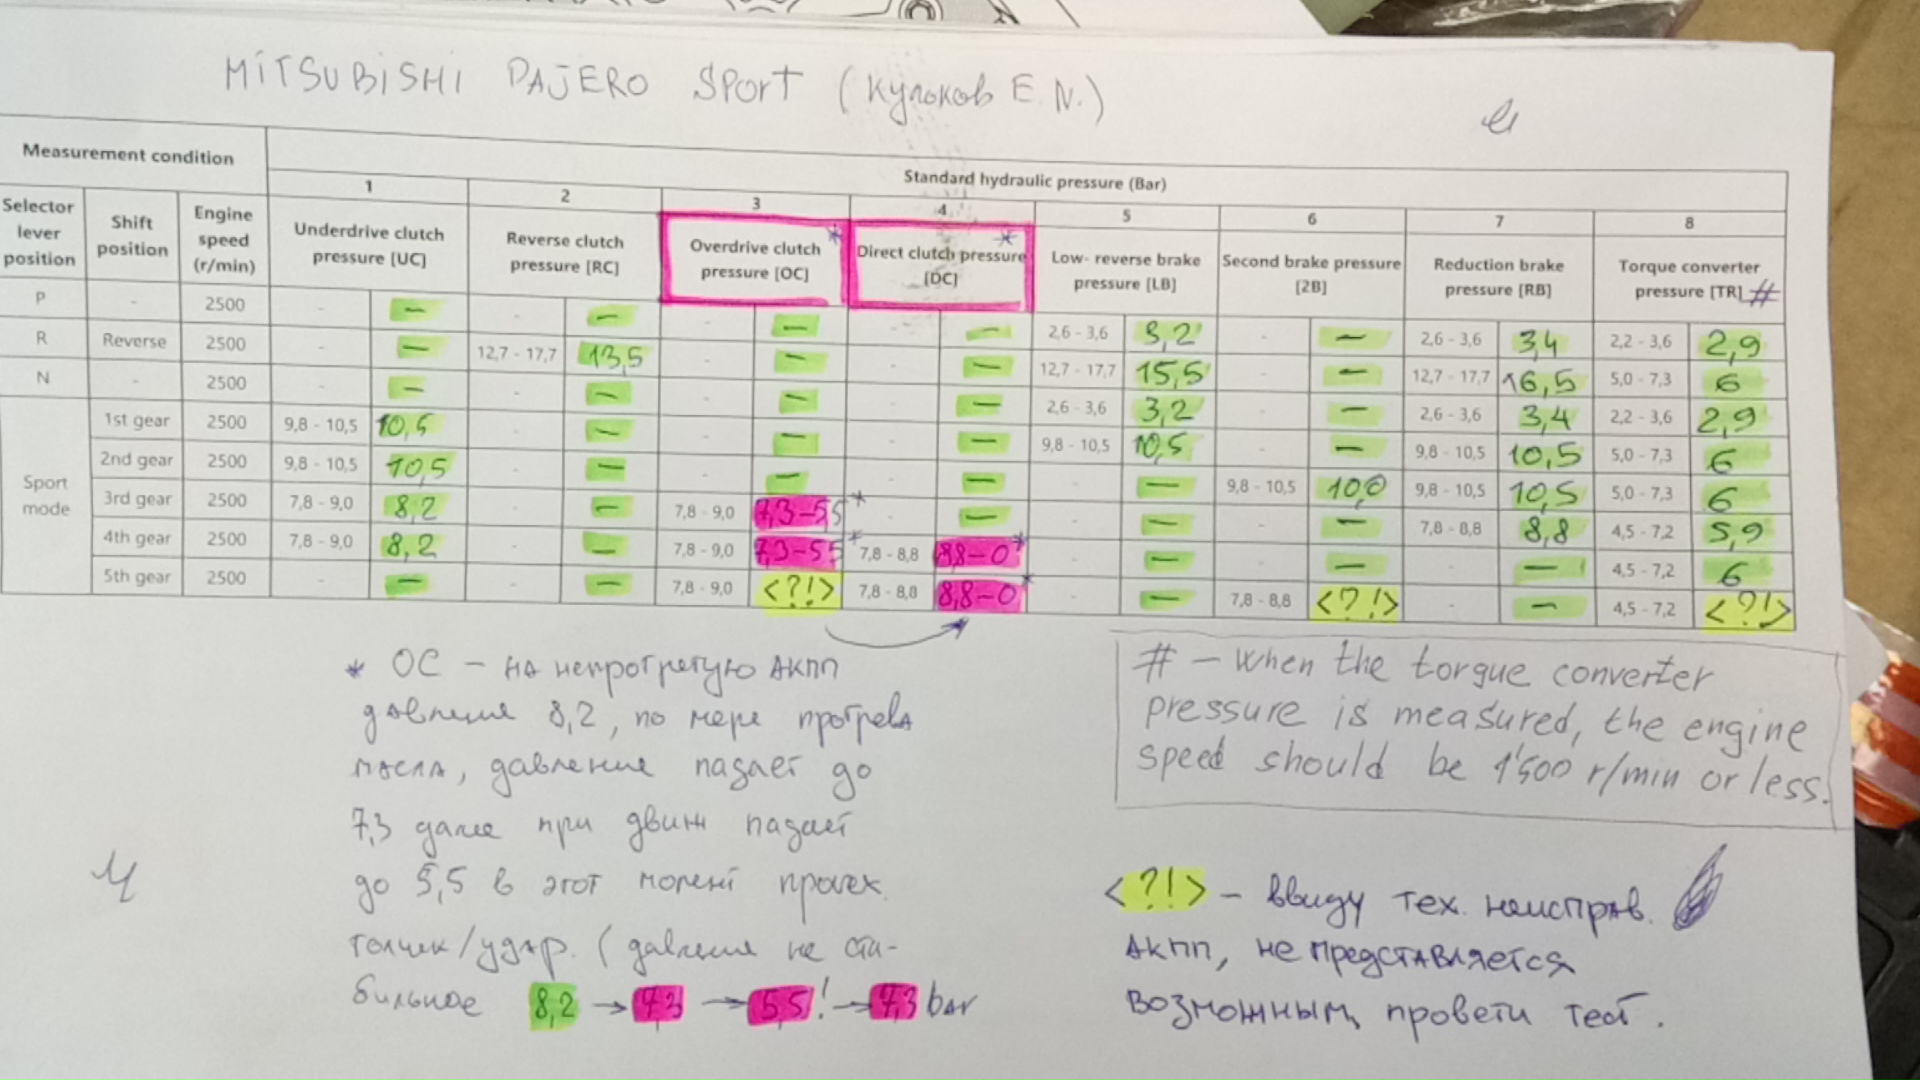 MITSUBISHI PAJERO SPORT (Кульков E.N.)
Measurement condition
Standard hydraulic pressure (Bar)
1 2 3 4 5 6 7 8
Selector lever position
Shift position
Engine speed (r/min)
Underdrive clutch pressure [UC]
Reverse clutch pressure [RC]
Overdrive clutch pressure [OC] *
Direct clutch pressure [DC] *
Low- reverse brake pressure [LB]
Second brake pressure [2B]
Reduction brake pressure [RB]
Torque converter pressure [TR] #
P - 2500 - — - — - — - — 2,6 - 3,6 3,2 - — 2,6 - 3,6 3,4 2,2 - 3,6 2,9
R Reverse 2500 - — 12,7 - 17,7 13,5 - — - — 12,7 - 17,7 15,5 - — 12,7 - 17,7 16,5 5,0 - 7,3 6
N - 2500 - — - — - — - — 2,6 - 3,6 3,2 - — 2,6 - 3,6 3,4 2,2 - 3,6 2,9
Sport mode
1st gear 2500 9,8 - 10,5 10,5 - — - — - — 9,8 - 10,5 10,5 - — 9,8 - 10,5 10,5 5,0 - 7,3 6
2nd gear 2500 9,8 - 10,5 10,5 - — - — - — - — 9,8 - 10,5 10,0 9,8 - 10,5 10,5 5,0 - 7,3 6
3rd gear 2500 7,8 - 9,0 8,2 - — 7,8 - 9,0 7,3-5,5 * - — - — - — 7,8 - 8,8 8,8 4,5 - 7,2 5,9
4th gear 2500 7,8 - 9,0 8,2 - — 7,8 - 9,0 7,3-5,5 * 7,8 - 8,8 8,8-0 * - — - — - — 4,5 - 7,2 6
5th gear 2500 - — - — 7,8 - 9,0 <?!> 7,8 - 8,8 8,8-0 * - — 7,8 - 8,8 <?!> - — 4,5 - 7,2 <?!>
* OC - на непрогретую АКПП
давление 8,2, по мере прогрева
масла, давление падает до
7,3 далее при движ падает
до 5,5 в этот момент
толчек/удар. (давление не ста-
бильное 8,2 → 7,3 → 5,5! → 7,3 bar
# - When the torque converter
pressure is measured, the engine
speed should be 1'500 r/min or less.
<?!> - ввиду тех. неисправ.
АКПП, не представляется
возможным провети тест.